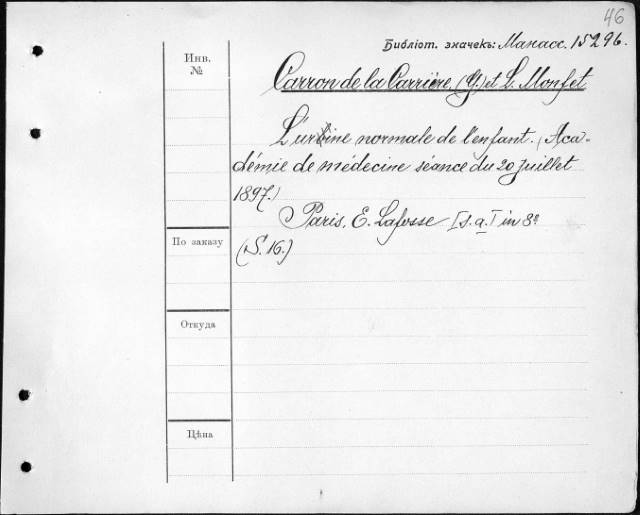 46
Библіот. значекъ: Манасс. 15296.
Инв.
№
Carron de la Carrière, (G.) et L. Monfet
L'urine normale de l'enfant. (Aca-
démie de médecine séance du 20 juillet
1897.)
Paris, E. Lafosse [s. a.] in 8º
(S. 16.)
По заказу
Откуда
Цѣна